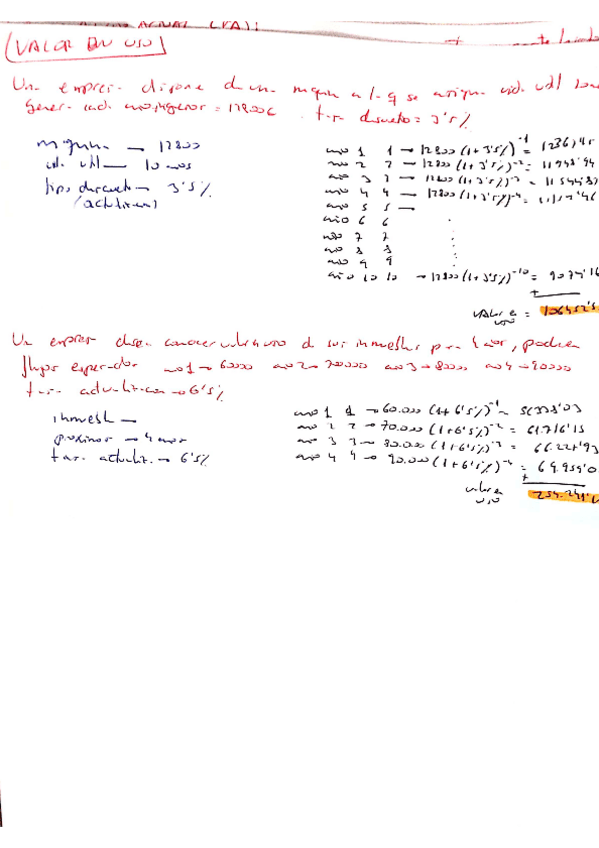 ACTUAL (VA):
(VALOR EN USO)
Una empresa dispone de una maquina a la q se asigna vida util
generar cada año ingresos = 12800€ . tasa descuento = 3'5%
maquina — 12800
vida util — 10 años
tipo descuento — 3'5%
(actualizacion)
año 1 1 → 12800 (1+3'5%)⁻¹ =
año 2 2 → 12800 (1+3'5%)⁻² = 11948'94
año 3 3 → 12800 (1+3'5%)⁻³ = 11544'87
año 4 4 → 12800 (1+3'5%)⁻⁴ =
año 5 5 —
año 6 6
año 7 7
año 8 8
año 9 9
año 10 10 → 12800 (1+3'5%)⁻¹⁰ = 9074'16
+
valor en uso = 106452'5
Una empresa desea conocer valor en uso de sus inmovilizado para 4 años, podria
flujos esperados año 1 → 60000 año 2 → 70000 año 3 → 80000 año 4 → 90000
tasa actualizacion → 6'5%
inmovili —
proximos → 4 años
tasa actualiz. → 6'5%
año 1 1 → 60.000 (1+6'5%)⁻¹ = 56338'03
año 2 2 → 70.000 (1+6'5%)⁻² = 61.716'15
año 3 3 → 80.000 (1+6'5%)⁻³ = 66.227'93
año 4 4 → 90.000 (1+6'5%)⁻⁴ = 69.959'0
+
valor en uso 254.241'